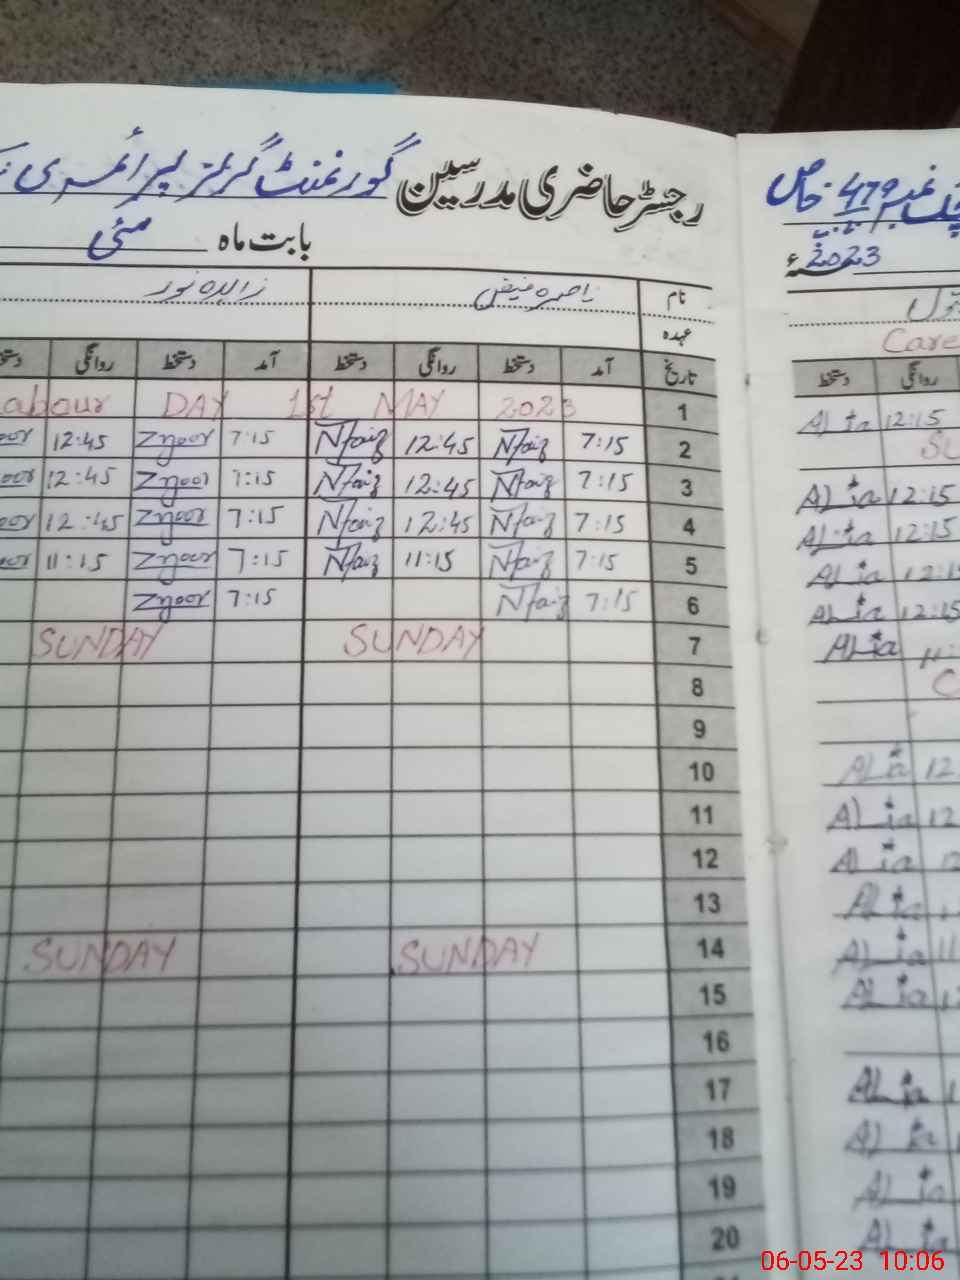 رجسٹر حاضری مدرسین گورنمنٹ گرلز پرائمری
بابت ماہ مئی
نام ناصرہ فیض زاہدہ نور
عہدہ
تاریخ آمد دستخط روانگی دستخط آمد دستخط روانگی
1 Labour DAY 1st MAY 2023
2 7:15 Nfaiz 12:45 Nfaiz 7:15 Znoor 12:45
3 7:15 Nfaiz 12:45 Nfaiz 7:15 Znoor 12:45
4 7:15 Nfaiz 12:45 Nfaiz 7:15 Znoor 12:45
5 7:15 Nfaiz 11:15 Nfaiz 7:15 Znoor 11:15
6 7:15 Nfaiz 7:15 Znoor
7 SUNDAY SUNDAY
8
9
10
11
12
13
14 SUNDAY SUNDAY
15
16
17
18
19
20
چک نمبر 479 خاص
2023ء
بتول
Care
روانگی دستخط
Alia 12:15
SU
Alia 12:15
Alia 12:15
Alia 12:1
Alia 12:15
Alia 11:
Alia 12
Alia 12
Alia 12
Alia
Alia 11
Alia
Alia
Alia
Alia
Alia
06-05-23 10:06